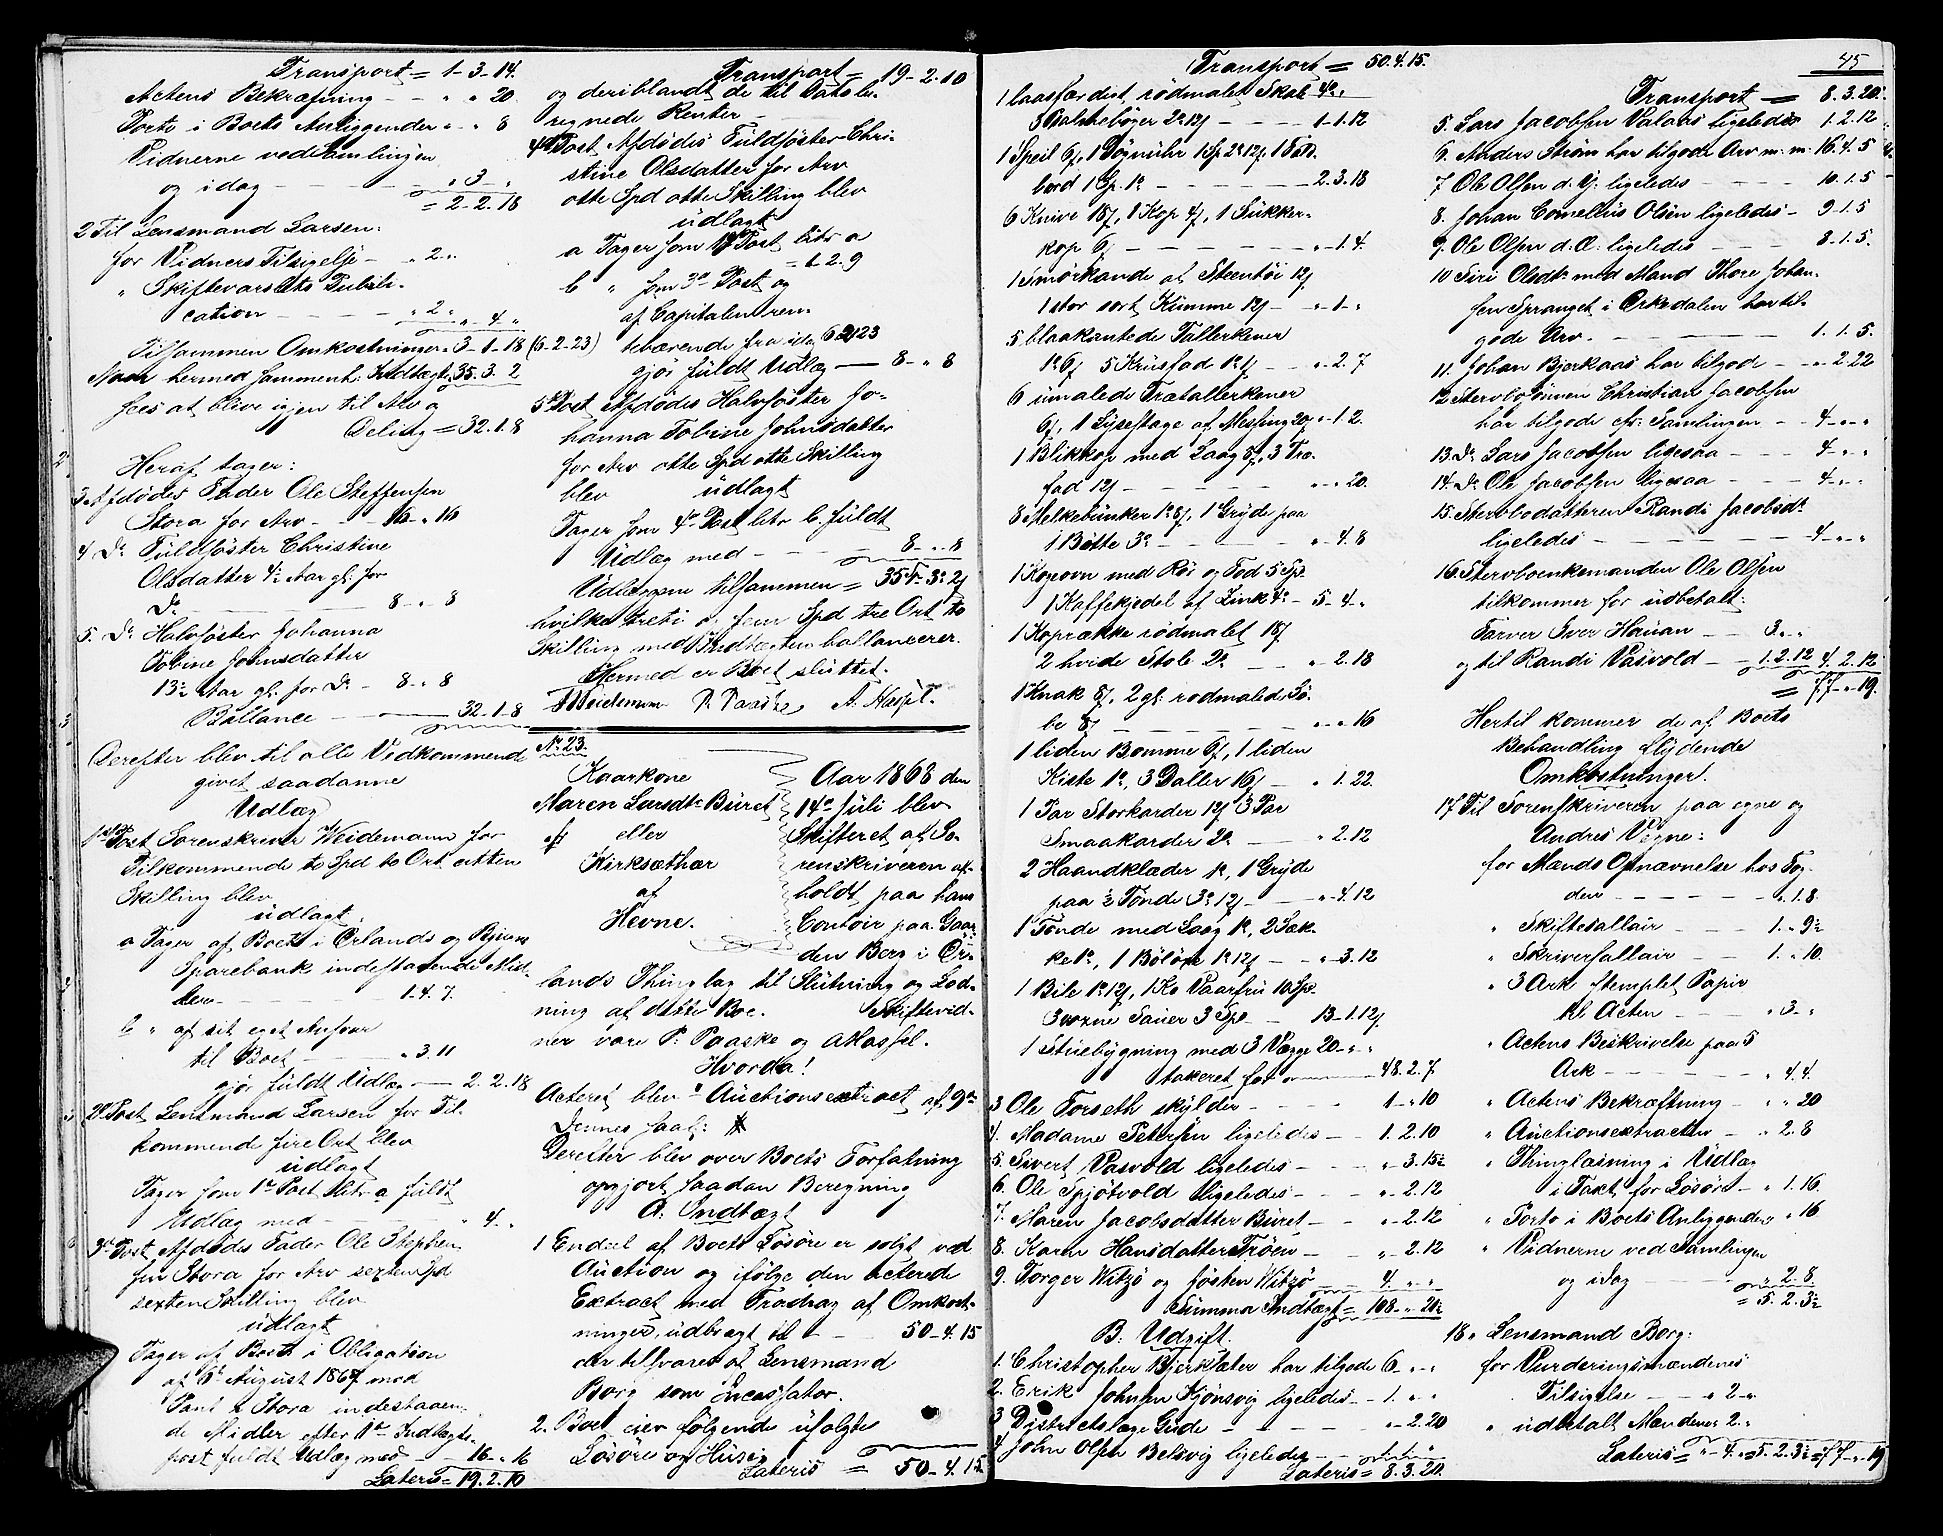 Transport = 1-3-14.
Actens Bekræftning - - " " 20
Porto i Boets Anliggender " " 8
Vidnerne ved Samlingen
og idag - - - - " 3 - "
= 2-2-18
2 Til Lensmand Larsen:
for Vidners Tilsigelse - " 2 "
" Skiftevarslets Publi-
cation - - - - " 2 "
" 4 "
Tilsammen Omkostninger 3-1-18
Naar hermed sammenh: Indtægt 35.3.2
sees at blive igjen til Arv og
Deling = 32.1.8
Heraf tager:
3 Afdødes Fader Ole Steffensen
Stora for Arv - - - 16 - " 16
4 Do Fuldsøster Christine
Olsdatter 4 1/2 Aar gl: for
Do - - - - 8 - " 8
5. Do Halvsøster Johanna
Tobine Johnsdatter
13 1/2 Aar gl. for Do - 8 - " 8
Ballance - - 32-1-8
Derefter blev til alle Vedkommende
givet saadanne
Udlæg
1ste Post Sorenskriver Weidemann for
Tilkommende to Spd to Ort atten
Skilling blev
udlagt.
a Tager af Boets i Ørlands og Bjørns
Sparebank indestaaende Mid-
ler - - - - 1.4.7.
b " af sit eget Ansvar
til Boet - - - " 3.11
gjør fuldt Udlæg - 2.2.18
2den Post Lensmand Larsen for Til-
kommende fire Ort blev
udlagt
Tager som 1ste Post litr a fuldt
Udlæg med - - - - " 4 "
3die Post Afdødes Fader Ole Stephen-
sen Stora for Arv sexten Spd
sexten Skilling blev
udlagt
Tager af Boets i Obligation
af 6te August 1867 mod
Pant i Stora indestaaen-
de Midler efter 1ste Indtægts-
post fuldt Udlæg med - 16 - " 16
Lateris = 19.2.10
Transport = 19-2-10
og deriblandt de til Dato be-
regnede Renter -
4de Post Afdødes Fuldsøster Chri-
stine Olsdatter for Arv
otte Spd otte Skilling blev
udlagt
a Tager som 1ste Post litr a
= 1.2.9
b " som 3die Post og
af Capitalen ren-
(6-2-23) tebærende fra idag 6 2/23
gjør fuldt Udlæg - 8 - " 8
5te Post Afdødes Halvsøster Jo-
hanna Tobine Johnsdatter
for Arv otte Spd otte Skilling
blev udlagt
Tager som 4de Post litr b. fuldt
Udlæg med - - - - 8 - " 8
Udlæggene tilsammen = 35 3 2
hvilke treti og fem Spd tre Ort to
Skilling med Indtægten ballancerer.
Hermed er Boet sluttet.
Weidemann P. Paaske A. Hassel.
No 23.
Kaarkone
Maren Larsdtr Buret
eller
Kirksæther
af
Hevne.
Aar 1868 den
14de Juli blev
Skifteret af So-
renskriveren af-
holdt paa hans
Contoir paa Gaar-
den Berg i Ør-
lands Thinglag til Slutning og Lod-
ning af dette Boe. Skiftevid-
ner vare P. Paaske og A Hassel.
Hvorda!
Acteret blev Auctionsextract af 9de
Dennes saal:
Derefter blev over Boets Forfatning
opgjort saadan Beregning
A: Indtægt
1 Endeel af Boets Løsøre er solgt ved
Auction og ifølge den acterede
Extract med Fradrag af Omkost-
ninger, udbragt til - - 50-4.15
der tilsvares af Lensmand
Borg som Incassator.
2. Boet eier følgende usolgte
Løsøre og Huse;
Lateris = 50-4.15
Transport = 50.4.15.
1 laasfærdigt rødmalet Skab 4 "
3 Salmebøger 2 12 - - - 1-1.12
1 Speil 6, 1 Bognuhr 1 Sp 2 12, 1 Fod-
bord 1 Sp. 1 - - - - 2.3.18
6 Knive 18, 1 Kop 4, 1 Sukker-
kop 6 - - - - " - 1.4.
1 Smørkande af Steentøi 12
1 stor sort Kumme 12 - " - 1 - "
5 blaakantede Tallerkener
1 6 5 Krusfad 1 - - " . 2.7
6 umalede Trætallerkener
6, 1 Lysestage af Messing 20 " - 1.2.
1 Blikkop med Laag 8, 3 Træ-
fad 12 - - - - " - " 20.
8 Melkebunker 1 8, 1 Gryde paa
1 Bøtte 3 - - - - " - 4.8
1 Kogovn med Rør og Fod 5 Sp.
1 Kaffekjedel af Zink 4 - 5-4-"
1 Koprække rødmalet 18
2 hvide Stole 2 - - " - 2.18
1 Knak 8, 2 gl. rødmalede Sø-
be 8 - - - - " - " 16
1 liden Bomme 6, 1 liden
Kiste 1, 3 Daller 16 - " . 1.22.
1 Par Storkarder 12 3 Par
Smaakarder 2 - - " - 2.12
2 Haandklæder 1, 1 Gryde
paa 1/2 Tønde 3 12 - - " - 4.12
1 Tønde med Laag 1, 2 Sæk-
ke 1, 1 1 12 - - " - 3.12
1 Bile 1 12, 1 Ko Vaarfru 10 Sp.
3 voxne Sauer 3 Sp - - 13-1.12
1 Stuebygning med 3 Vægge 20 - " - "
takeret for - - 48.2.7
3 Ole Forseth skylder - - - - 1 - " 10
4. Madame Petersen ligeledes - - 1.2.10
5. Sivert Vasvold ligeledes - - - " - 3.15 1/2
6. Ole Spjøtvold ligeledes - - - " - 2.12
7. Maren Jacobsdatter Buret - - " - 2.12
8. Karen Hansdatter Trøen - - " - 2.12
9. Torger Witzø og Josten Witzø - 4. " - "
Summa Indtægt = 108 - " 20 1/2
B: Udgift.
1. Christopher Bjerksæter har tilgode 6 " - "
2. Erik Johnsen Kjønsvig ligeledes - 1. " - "
3 Districtslæge Gude - - - - " - 2.20
4 John Olsen Belsvig ligeledes - - " 1. "
Lateris = 8.3.20.
45
Transport = 8.3.20.
5. Lars Jacobsen Valaas ligeledes 1.2.12
6. Anders Strøm har tilgode Arv m: m: 16.4.5
7 Ole Olsen d. Y. ligeledes - - - 10.1.5
8. Johan Cornelius Olsen ligeledes - 9.1.5
9. Ole Olsen d. Æ. ligeledes - - - 8.1.5.
10 Siri Olsdtr med Mand Thore Johan-
sen Spranget i Ørkedalen har til-
gode Arv - - - - - 1.1.5.
11. Johan Bjerkaas har tilgode - - " . 2.22
12 Stervbosønnen Christian Jacobsen
har tilgode efr: Samlingen - - 4 - " - "
13. Do Lars Jacobsen ligesaa - - - 4 - " - "
14. Do Ole Jacobsen ligesaa - - - 4 - " - "
15. Stervbodatteren Randi Jacobsdtr
ligeledes - - - - - 4 - " - "
16. Stervboenkemanden Ole Olsen
tilkommer for udbetalt:
Farver Iver Hauan - - 3. " "
og til Randi Vasvold - 1.2.12 4.2.12
= 77 - " 19.
Hertil kommer de af Boets
Behandling flydende
Omkostninger.
17 Til Sorenskriveren paa egne og
Andres Vegne:
for Mænds Opnævnelse hos Fog-
den - - - - " . 1.8.
" Skiftesallair - - - 1. " 9 1/2
" Skriversallair - - - 1. " 10.
" 3 Ark stemplet Papir
til Acten - - - " 3 - "
" Actens Beskrivelse paa 5
Ark - - - - " 4.4.
" Actens Bekræftning - - " " 20
" Auctionsextracten - - " 2.8
" Thinglæsning i Udlæg
i Takt for Løsøre - " 1.16.
" Porto i Boets Anliggender " 16
" Vidnerne ved Samlingen
og idag - - - - " 2.8.
= 5.2.3 1/2
18 " Lensmand Borg:
for Vurderingsmændenes
Tilsigelse - - " 2 - "
" udbetalt Mændene " 2. "
Lateris = " - 4. " = 5.2.3 1/2 = 77 - " 19